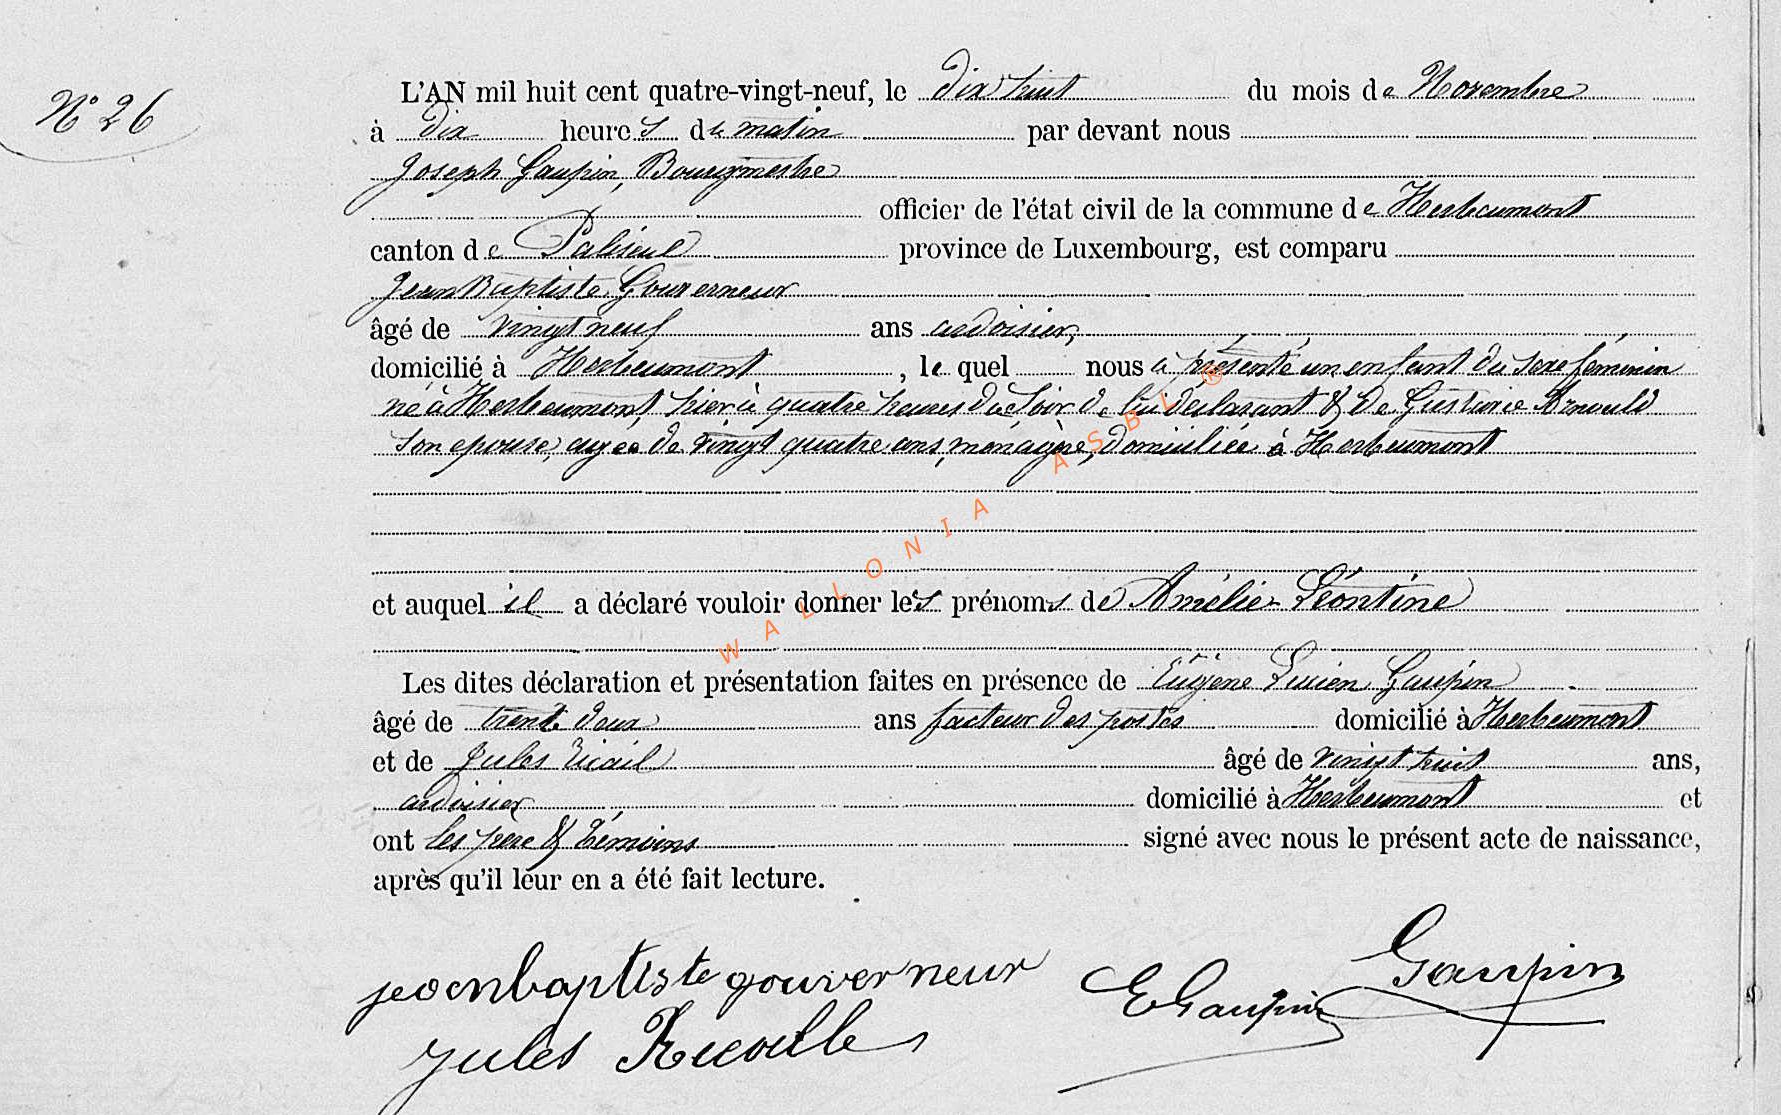 N° 26
L'AN mil huit cent quatre-vingt-neuf, le dix huit du mois de Novembre
à dix heures du matin par devant nous
Joseph Gaupin, Bourgmestre
officier de l'état civil de la commune de Herbeumont
canton de Paliseul province de Luxembourg, est comparu
Jean Baptiste Gouverneur
âgé de vingt neuf ans ardoisier,
domicilié à Herbeumont, le quel nous a présenté un enfant du sexe féminin
né à Herbeumont, hier à quatre heures du soir de lui déclarant & de Justinie Arnould
son epouse, agée de vingt quatre ans, ménagère, domiciliée à Herbeumont
et auquel il a déclaré vouloir donner les prénoms de Amélie-Léontine
Les dites déclaration et présentation faites en présence de Eugène Lucien Gaupin
âgé de trente deux ans facteur des postes domicilié à Herbeumont
et de Jules âgé de vingt huit ans,
ardoisier domicilié à Herbeumont et
ont les père & témoins signé avec nous le présent acte de naissance,
après qu'il leur en a été fait lecture.
jean baptiste gouverneur
E Gaupin
Gaupin
Jules
WALLONIA ASBL ®